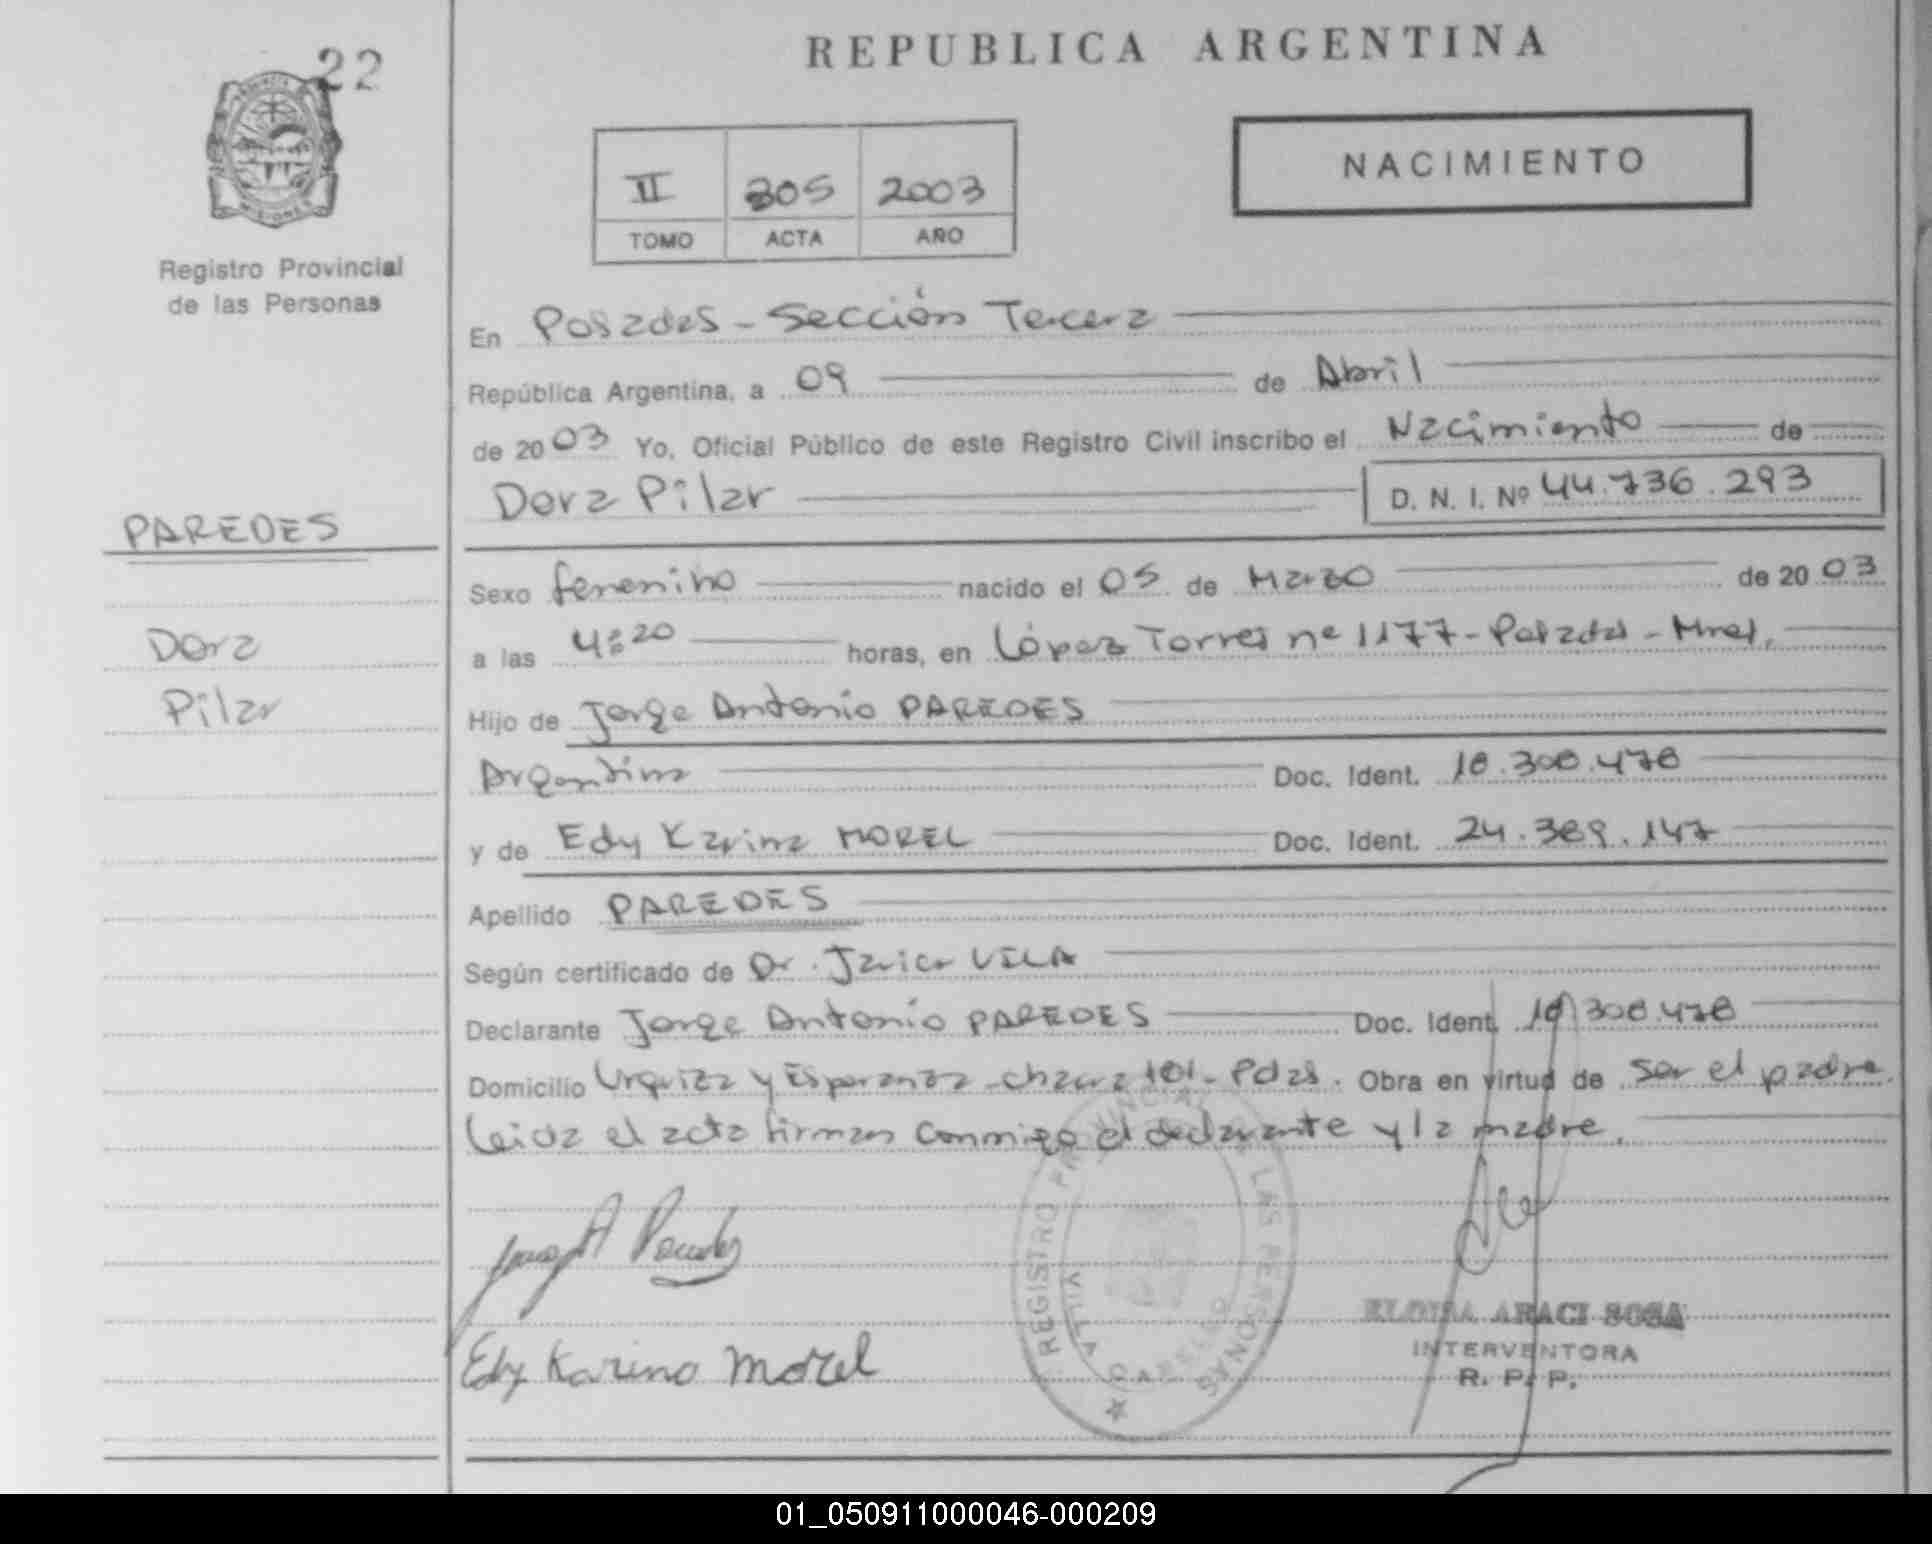 22
REPUBLICA ARGENTINA
NACIMIENTO
II 305 2003
TOMO ACTA AÑO
Registro Provincial
de las Personas
En Posadas - Sección Tercera
República Argentina, a 09 de Abril
de 2003 Yo, Oficial Público de este Registro Civil inscribo el Nacimiento de
Dora Pilar D. N. I. Nº 44.736.293
PAREDES
Dora
Pilar
Sexo femenino nacido el 05 de Marzo de 2003
a las 4:20 horas, en López Torres nº 1177 - Posadas - Mnes.
Hijo de Jorge Antonio PAREDES
Argentina Doc. Ident. 18.308.478
y de Edy Karina MOREL Doc. Ident. 24.389.147
Apellido PAREDES
Según certificado de Dr. Javier VILA
Declarante Jorge Antonio PAREDES Doc. Ident. 18.308.478
Domicilio Urquiza y Esperanza - chacra 101 - Pdas. Obra en virtud de ser el padre.
Leida el acta firman conmigo el declarante y la madre.
REGISTRO PROVINCIAL DE LAS PERSONAS
VILLA CABELLO
Edy Karina Morel
ELOISA ARACI SOSA
INTERVENTORA
R. P. P.
01_050911000046-000209